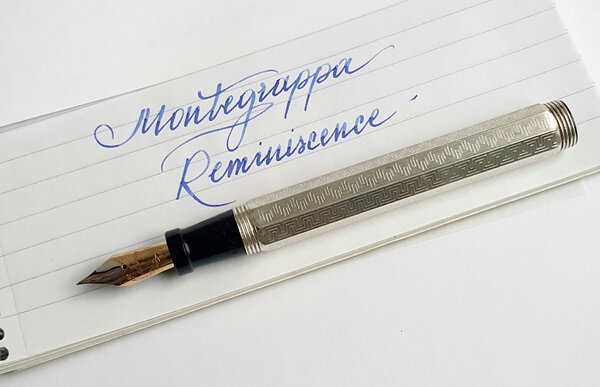 Montegrappa
Reminiscence